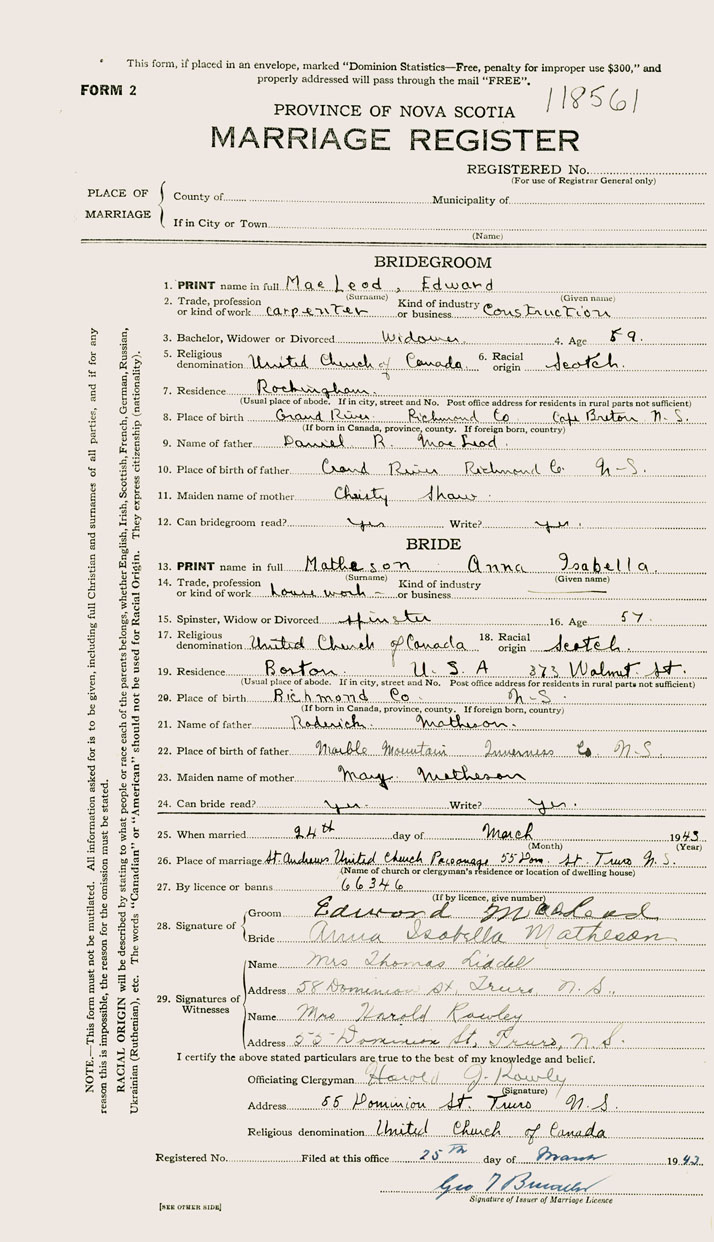 This form, if placed in an envelope, marked "Dominion Statistics—Free, penalty for improper use $300," and
properly addressed will pass through the mail "FREE".
FORM 2
118561
PROVINCE OF NOVA SCOTIA
MARRIAGE REGISTER
REGISTERED No.
(For use of Registrar General only)
PLACE OF MARRIAGE
County of Municipality of
If in City or Town
(Name)
BRIDEGROOM
1. PRINT name in full MacLeod, Edward
(Surname) (Given name)
2. Trade, profession or kind of work carpenter Kind of industry or business Construction
3. Bachelor, Widower or Divorced Widower 4. Age 59.
5. Religious denomination United Church of Canada. 6. Racial origin Scotch.
7. Residence Rockingham.
(Usual place of abode. If in city, street and No. Post office address for residents in rural parts not sufficient)
8. Place of birth Grand River Richmond Co Cape Breton N.S.
(If born in Canada, province, county. If foreign born, country)
9. Name of father Daniel R. MacLeod.
10. Place of birth of father Grand River Richmond Co. N-S.
11. Maiden name of mother Christy Shaw.
12. Can bridegroom read? yes Write? yes.
BRIDE
13. PRINT name in full Matheson Anna Isabella.
(Surname) (Given name)
14. Trade, profession or kind of work house work – Kind of industry or business
15. Spinster, Widow or Divorced spinster 16. Age 57.
17. Religious denomination United Church of Canada 18. Racial origin Scotch.
19. Residence Boston U.S.A 373 Walnut St.
(Usual place of abode. If in city, street and No. Post office address for residents in rural parts not sufficient)
20. Place of birth Richmond Co N-S.
(If born in Canada, province, county. If foreign born, country)
21. Name of father Roderick. Matheson.
22. Place of birth of father Marble Mountain Inverness Co. N.S.
23. Maiden name of mother Mary Matheson
24. Can bride read? yes. Write? yes.
25. When married 24th day of March 1943
(Month) (Year)
26. Place of marriage St. Andrews United Church Parsonage 55 Dom. St. Truro N.S.
(Name of church or clergyman's residence or location of dwelling house)
27. By licence or banns 66346
(If by licence, give number)
28. Signature of
Groom Edward MacLeod
Bride Anna Isabella Matheson
29. Signatures of Witnesses
Name Mrs Thomas Liddel
Address 58 Dominion St, Truro, N.S.
Name Mrs Harold Rowley
Address 55 Dominion St, Truro, N.S.
I certify the above stated particulars are true to the best of my knowledge and belief.
Officiating Clergyman Harold J. Rowly
(Signature)
Address 55 Dominion St. Truro N.S.
Religious denomination United Church of Canada
Registered No. Filed at this office 25th day of March 1943.
Geo T
Signature of Issuer of Marriage Licence
[SEE OTHER SIDE]
NOTE.—This form must not be mutilated. All information asked for is to be given, including full Christian and surnames of all parties, and if for any
reason this is impossible, the reason for the omission must be stated.
RACIAL ORIGIN will be described by stating to what people or race each of the parents belongs, whether English, Irish, Scottish, French, German, Russian,
Ukrainian (Ruthenian), etc. The words "Canadian" or "American" should not be used for Racial Origin. They express citizenship (nationality).